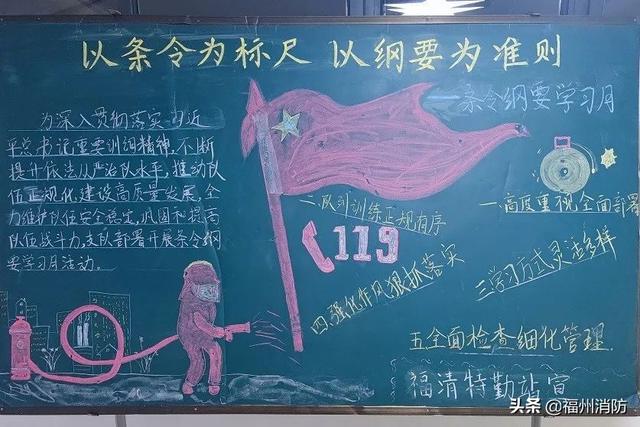 以条令为标尺 以纲要为准则
一条令纲要学习月
为深入贯彻落实习近
平总书记重要训词精神,不断
提升依法从严治队水平,推动队
伍正规化,建设高质量发展,全
力维护队伍安全稳定,巩固和提高
队伍战斗力,支队部署开展条令纲
要学习月活动。
一.高度重视全面部署
二.队列训练正规有序
119
三学习方式灵活多样
四.强化作风狠抓落实
五全面检查细化管理.
福清特勤站宣
头条 @福州消防